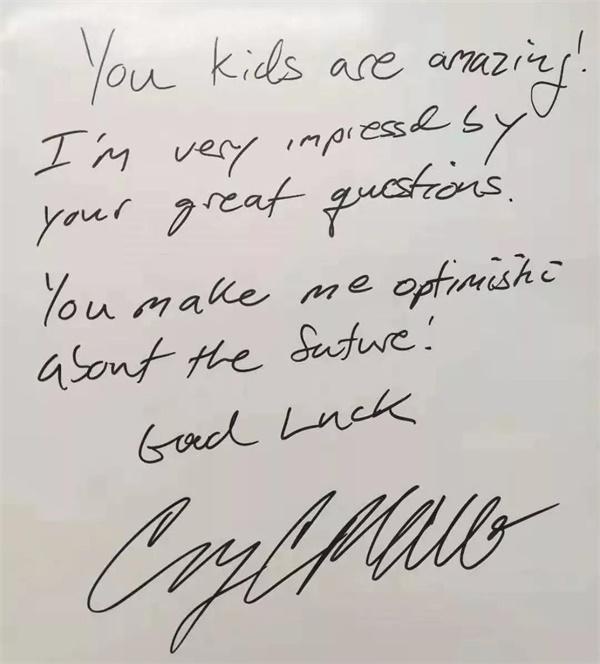 You kids are amazing!
I'm very impressed by
your great questions.
You make me optimistic
about the future!
Good Luck